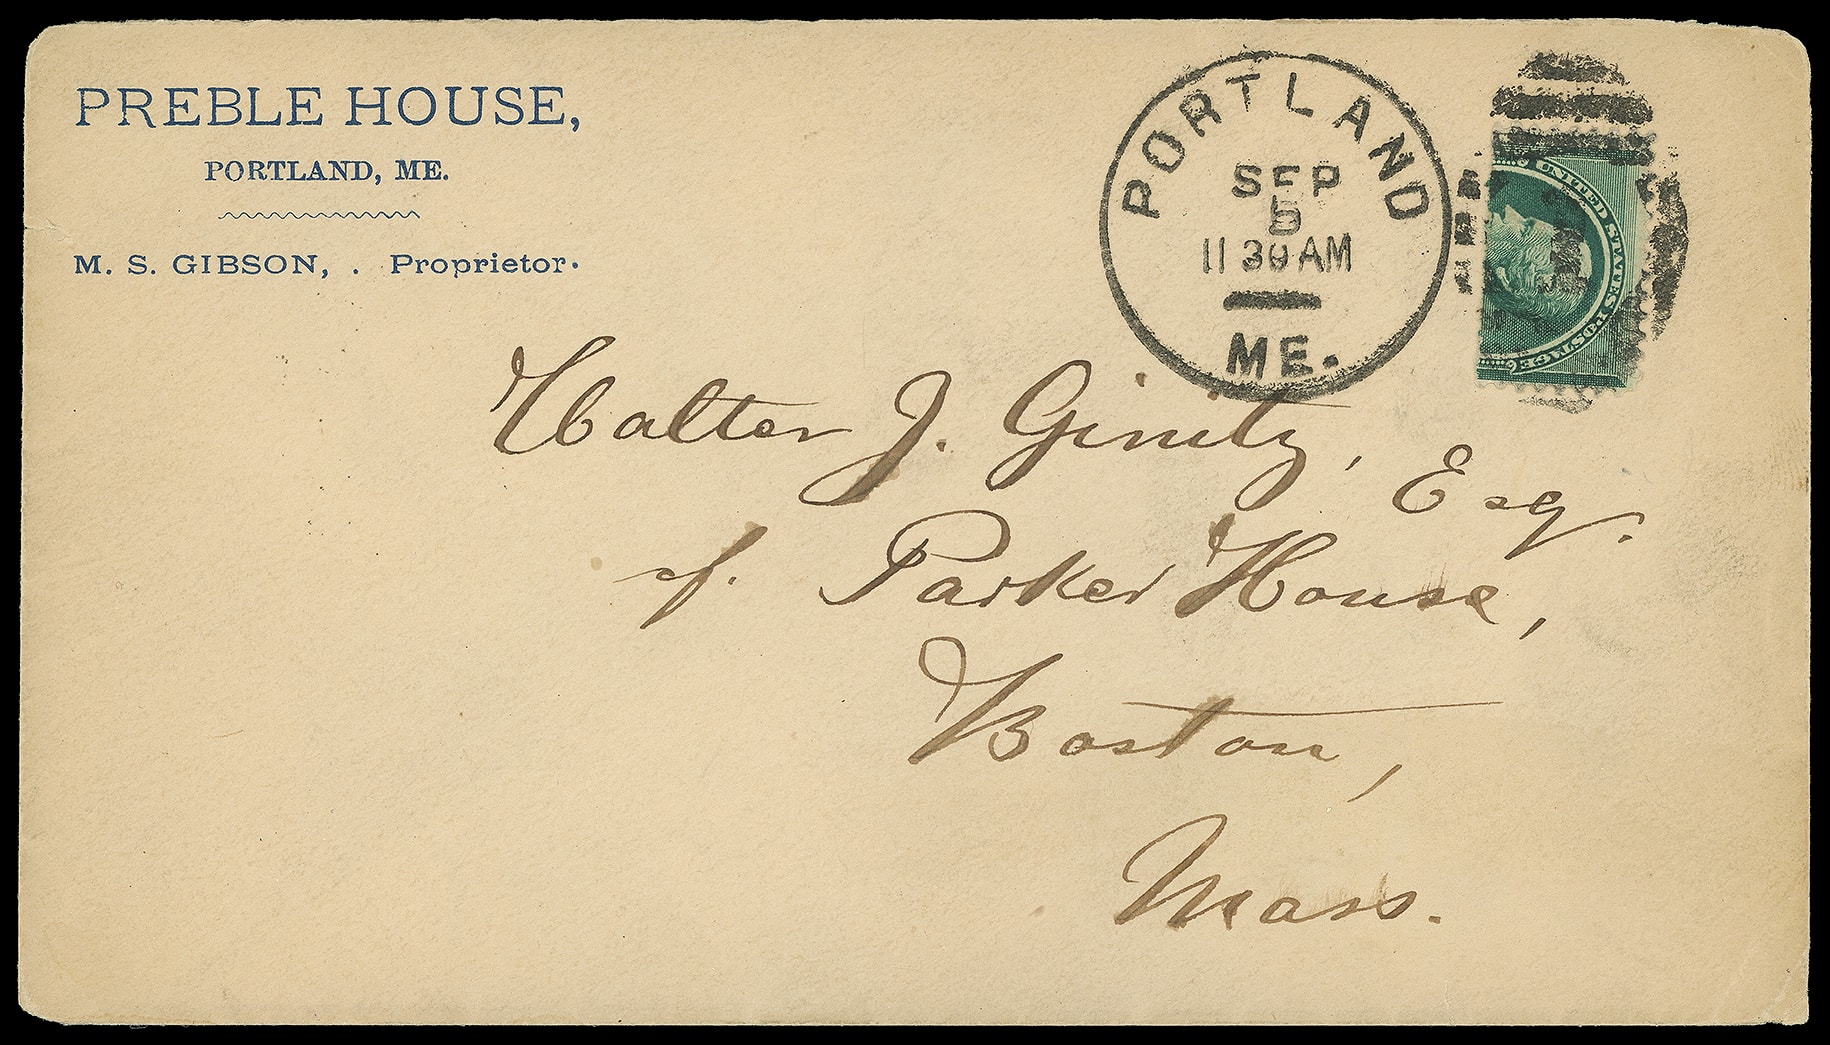 PREBLE HOUSE,
PORTLAND, ME.
M. S. GIBSON, . Proprietor.
PORTLAND
SEP
11 30 AM
ME.
UNITED STATES POSTAGE
Walter J. Ginity, Esq.
of. Parker House,
Boston,
Mass.